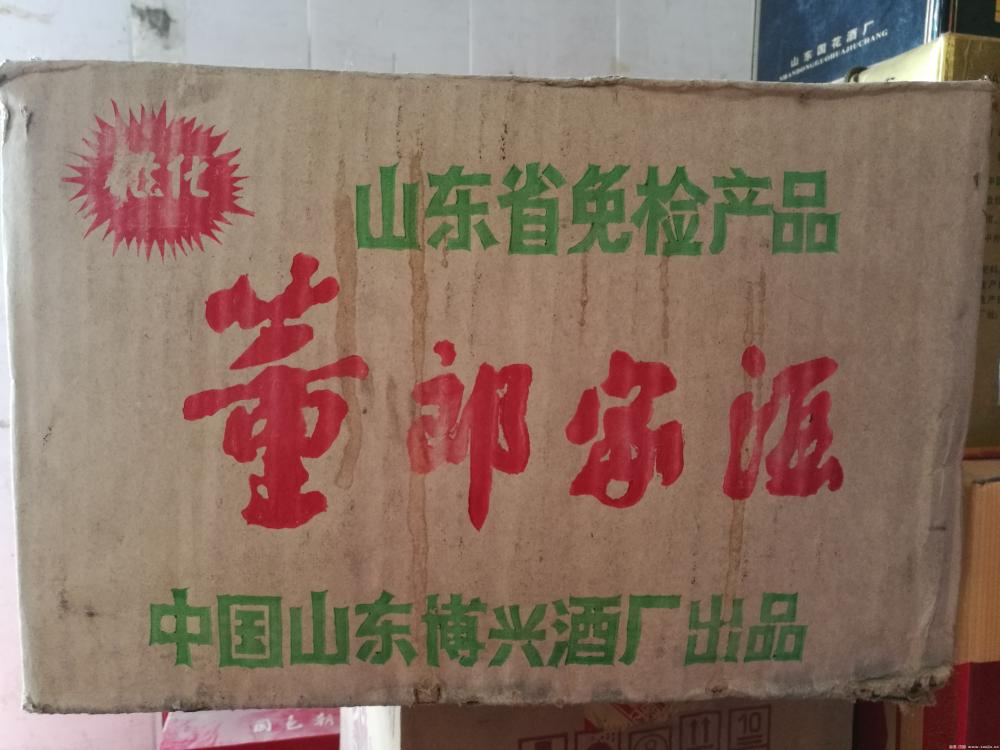 山东国花酒厂
SHANDONGGUOHUAJIUCHANG
磁化
山东省免检产品
董郎家酒
中国山东博兴酒厂出品
国色
10